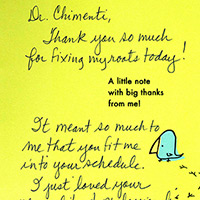 Dr. Chimenti,
Thank you so much
for fixing my roots today!
A little note
with big thanks
from me!
It meant so much to
me that you fit me
into your schedule.
I just loved your